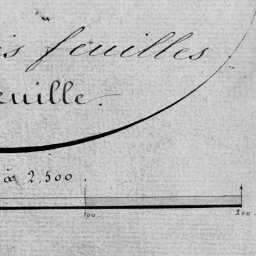 is feuilles
euille.
à 2.500.
100 200